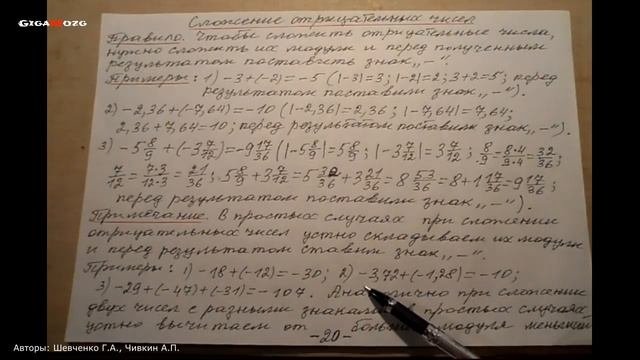 GIGAMOZG
Сложение отрицательных чисел
Правило. Чтобы сложить отрицательные числа,
нужно сложить их модули и перед полученным
результатом поставить знак „–".
Примеры: 1) –3+(–2)=–5 (|–3|=3; |–2|=2; 3+2=5; перед
результатом поставили знак „–").
2) –2,36+(–7,64)=–10 (|–2,36|=2,36; |–7,64|=7,64;
2,36+7,64=10; перед результатом поставили знак „–").
3) –5 8/9+(–3 7/12)=–9 17/36 (|–5 8/9|=5 8/9; |–3 7/12|=3 7/12; 8/9=8·4/9·4=32/36;
7/12=7·3/12·3=21/36; 5 8/9+3 7/12=5 32/36+3 21/36=8 53/36=8+1 17/36=9 17/36;
перед результатом поставили знак „–").
Примечание. В простых случаях при сложении
отрицательных чисел устно складываем их модули
и перед результатом ставим знак „–".
Примеры: 1) –18+(–12)=–30; 2) –3,72+(–1,28)=–10;
3) –29+(–47)+(–31)=–107. при сложении
двух чисел с разными знаками простых случаях
устно вычитаем от большего модуля меньший
–20–
Авторы: Шевченко Г.А., Чивкин А.П.